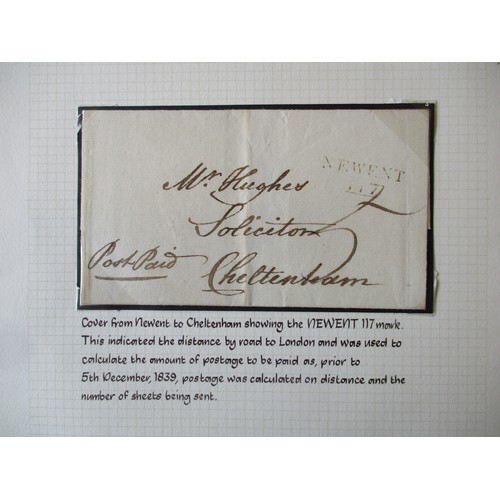 NEWENT
117
Mr. Hughes
Solicitor
Post Paid
Cheltenham
Cover from Newent to Cheltenham showing the NEWENT 117 mark.
This indicated the distance by road to London and was used to
calculate the amount of postage to be paid as, prior to
5th December, 1839, postage was calculated on distance and the
number of sheets being sent.